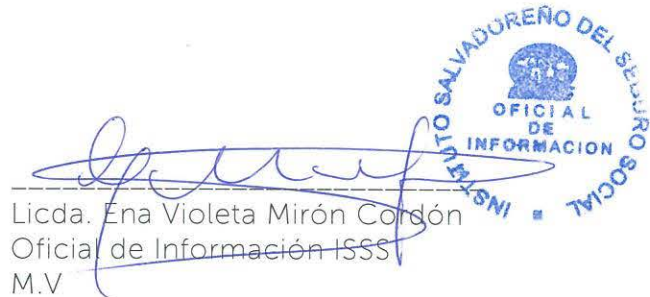 INSTITUTO SALVADOREÑO DEL SEGURO SOCIAL
OFICIAL
DE
INFORMACION
Licda. Ena Violeta Mirón Cordón
Oficial de Información ISSS
M.V